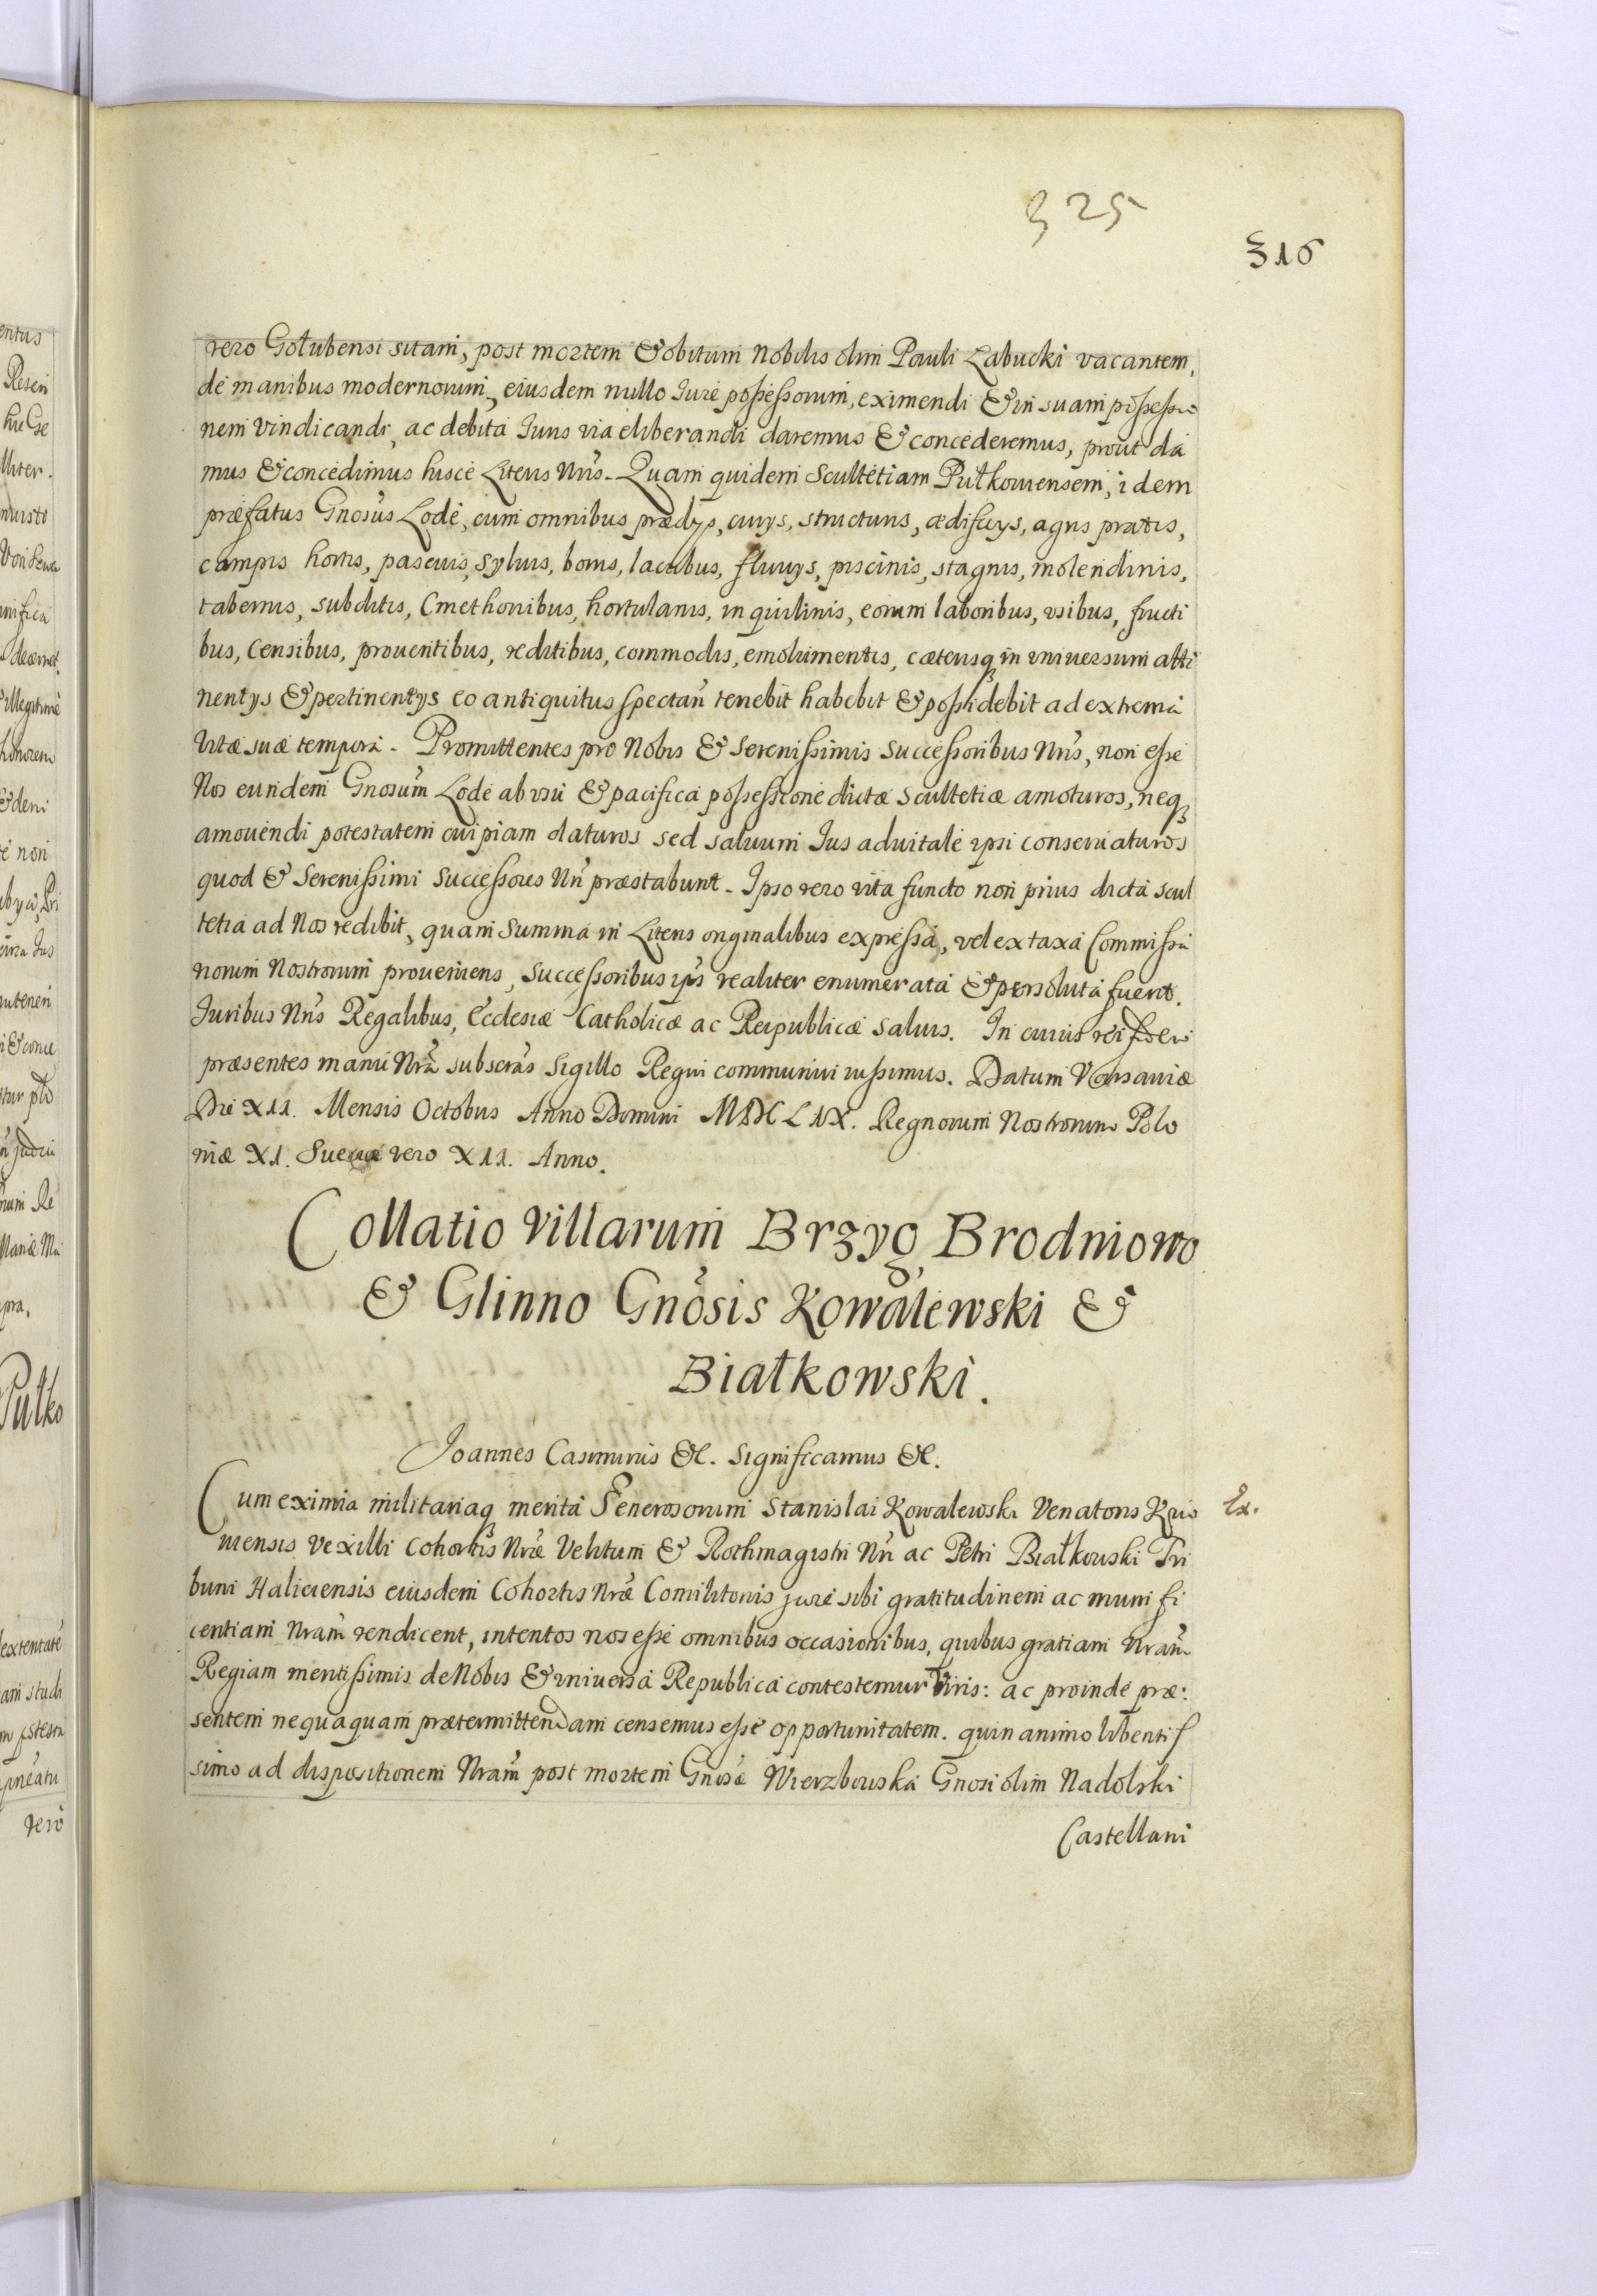 325
316
vero Gołubensi sitam, post mortem & obitum Nobilis olim Pauli Łabucki vacantem,
de manibus modernorum, eiusdem nullo Iure possessorum, eximendi & in suam possessio
nem vindicandi, ac debita Iuris via eliberandi daremus & concederemus, prout da
mus & concedimus hisce Literis Nris. Quam quidem Scultetiam Pułkowiensem, idem
præfatus Gnosus Lode, cum omnibus prædys, curys, structuris, ædificys, agris pratis,
campis hortis, pascuis, syluis, boris, lacubus, fluuys, piscinis, stagnis, molendinis,
tabernis, subditis, Cmethonibus, hortulanis, inquilinis, eorum laboribus, vsibus, fructi
bus, Censibus, prouentibus, reditibus, commodis, emolumentis, cæterisq in vniuersum atti
nentys & pertinentys eo antiquitus spectan tenebit habebit & possidebit ad extrema
Vitæ suæ tempora. Promittentes pro Nobis & Serenissimis Successoribus Nris, non esse
Nos eundem Gnosum Lode ab vsu & pacifica possessione dictæ Scultetiæ amoturos, neq
amouendi potestatem cuipiam daturos sed saluum Ius aduitale ipsi conseruaturos
quod & Serenissimi Successores Nri præstabunt. Ipso vero vita functo non prius dicta Scul
tetia ad Nos redibit, quam Summa in Literis originalibus expressa, vel ex taxa Commissa
riorum Nostrorum proueniens, Successoribus ips realiter enumerata & persoluta fuerit.
Iuribus Nris Regalibus, Ecclesiæ Catholicæ ac Reipublicæ saluis. In cuius rei fidem
præsentes manu Nra subscras Sigillo Regni communiri iussimus. Datum Varsauiæ
Die XII. Mensis Octobris Anno Domini MDCLIX. Regnorum Nostrorum Polo
niæ XI. Sueciæ vero XII. Anno.
Collatio Villarum Brzyg, Brodniowo
& Glinno Gnosis Kowalewski &
Białkowski.
Joannes Casimirus &c. Significamus &c.
Cum eximia militariaq merita Generosorum Stanislai Kowalewski Venatoris Kiio
uiensis Vexilli Cohortis Nræ Velitum & Rothmagistri Nri ac Petri Białkowski Tri
buni Haliciensis eiusdem Cohortis Nræ Comilitonis jure sibi gratitudinem ac munifi
centiam Nram vendicent, intentos nos esse omnibus occasionibus, quibus gratiam Nram
Regiam meritissimis de Nobis & vniuersa Republica contestemur Viris: ac proinde præ:
sentem nequaquam prætermittendam censemus esse opportunitatem. quin animo libentis
simo ad dispositionem Nram post mortem Gnosæ Wierzbowska Gnosi olim Nadolski
Castellani
Ex.